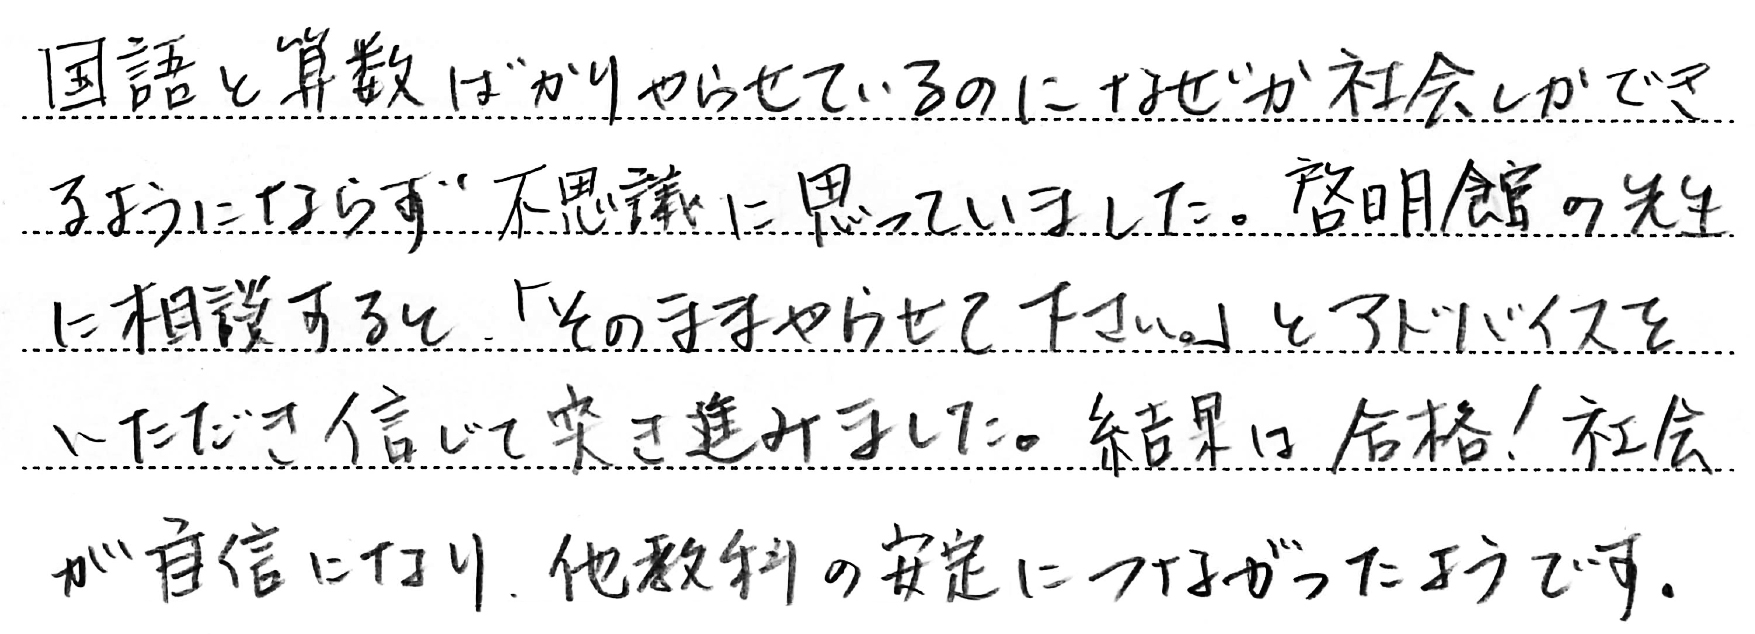 国語と算数ばかりやらせているのになぜか社会しかでき
るようにならず不思議に思っていました。啓明館の先生
に相談すると、「そのままやらせて下さい。」とアドバイスを
いただき信じて突き進みました。結果は合格！社会
が自信になり、他教科の安定につながったようです。